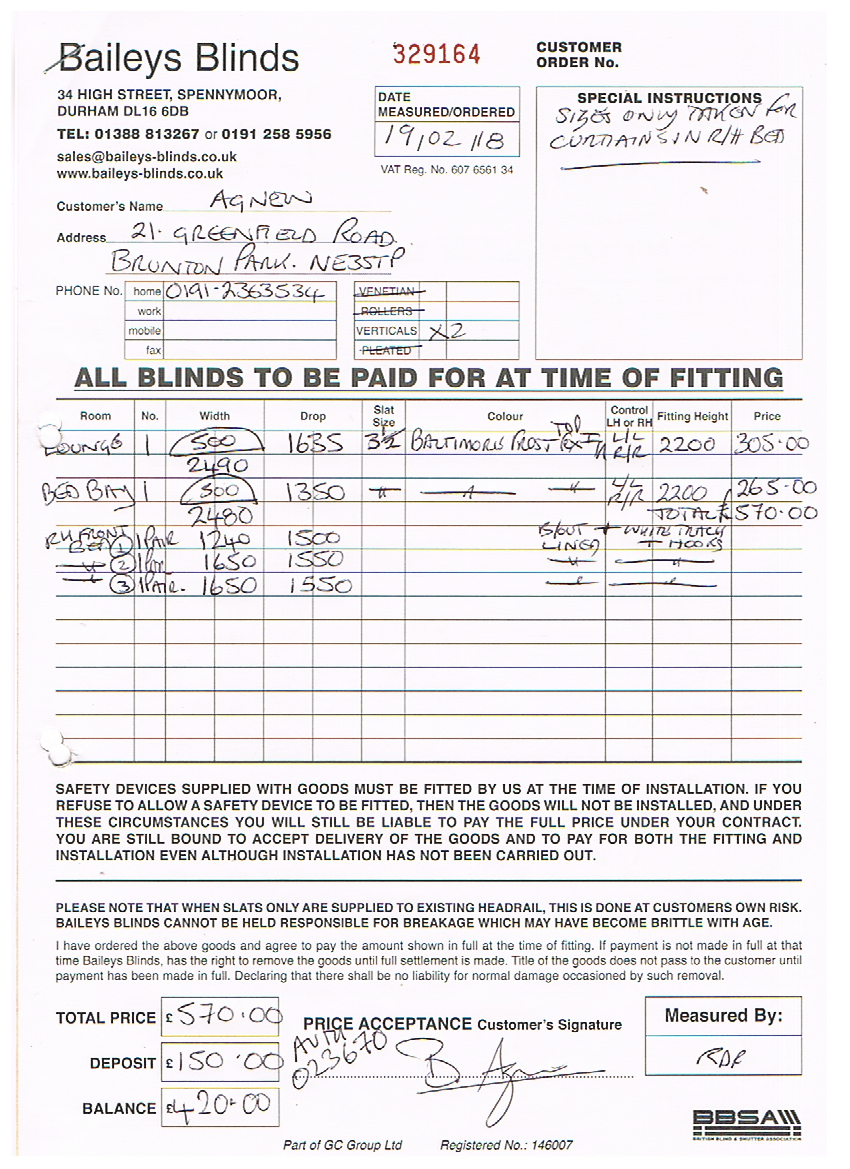 Baileys Blinds
329164
CUSTOMER
ORDER No.
34 HIGH STREET, SPENNYMOOR,
DURHAM DL16 6DB
TEL: 01388 813267 or 0191 258 5956
sales@baileys-blinds.co.uk
www.baileys-blinds.co.uk
DATE
MEASURED/ORDERED
19/02/18
VAT Reg. No. 607 6561 34
SPECIAL INSTRUCTIONS
SIZES ONLY TAKEN FOR
CURTAINS IN R/H BED
Customer's Name AGNEW
Address 21. GREENFIELD ROAD.
BRUNTON PARK. NE35TP
PHONE No. home 0191-2363534
work
mobile
fax
VENETIAN
ROLLERS
VERTICALS X2
PLEATED
ALL BLINDS TO BE PAID FOR AT TIME OF FITTING
Room No. Width Drop Slat Size Colour Control LH or RH Fitting Height Price
LOUNGE 1 500 1635 3½ BALTIMORE FROST TOP FIX L/L R/R 2200 305.00
2490
BED BAY 1 500 1350 L/L R/R 2200 265.00
2480 TOTAL £570.00
RH FRONT BED 1 1PAIR 1240 1500 B/OUT LINED + WHITE TRACK + HOOKS
2 1PAIR 1650 1550
3 1PAIR. 1650 1550
SAFETY DEVICES SUPPLIED WITH GOODS MUST BE FITTED BY US AT THE TIME OF INSTALLATION. IF YOU
REFUSE TO ALLOW A SAFETY DEVICE TO BE FITTED, THEN THE GOODS WILL NOT BE INSTALLED, AND UNDER
THESE CIRCUMSTANCES YOU WILL STILL BE LIABLE TO PAY THE FULL PRICE UNDER YOUR CONTRACT.
YOU ARE STILL BOUND TO ACCEPT DELIVERY OF THE GOODS AND TO PAY FOR BOTH THE FITTING AND
INSTALLATION EVEN ALTHOUGH INSTALLATION HAS NOT BEEN CARRIED OUT.
PLEASE NOTE THAT WHEN SLATS ONLY ARE SUPPLIED TO EXISTING HEADRAIL, THIS IS DONE AT CUSTOMERS OWN RISK.
BAILEYS BLINDS CANNOT BE HELD RESPONSIBLE FOR BREAKAGE WHICH MAY HAVE BECOME BRITTLE WITH AGE.
I have ordered the above goods and agree to pay the amount shown in full at the time of fitting. If payment is not made in full at that
time Baileys Blinds, has the right to remove the goods until full settlement is made. Title of the goods does not pass to the customer until
payment has been made in full. Declaring that there shall be no liability for normal damage occasioned by such removal.
TOTAL PRICE £570.00
DEPOSIT £150.00
BALANCE £420.00
PRICE ACCEPTANCE Customer's Signature
AUTH
023670
B. Agnew
Measured By:
RDR
BBSA
BRITISH BLIND & SHUTTER ASSOCIATION
Part of GC Group Ltd Registered No.: 146007